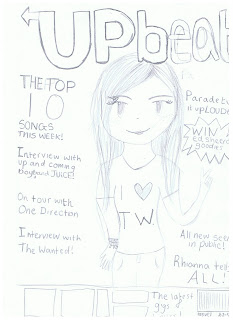 UPbeat
THE TOP
10
SONGS
THIS WEEK!
Interview with
up and coming
Boyband JUICE!
On tour with
One Direction
Interview with
The Wanted!
I ♡
TW
WIN
goodies
All new
in public!
Rhianna
ALL!
The latest
gigs